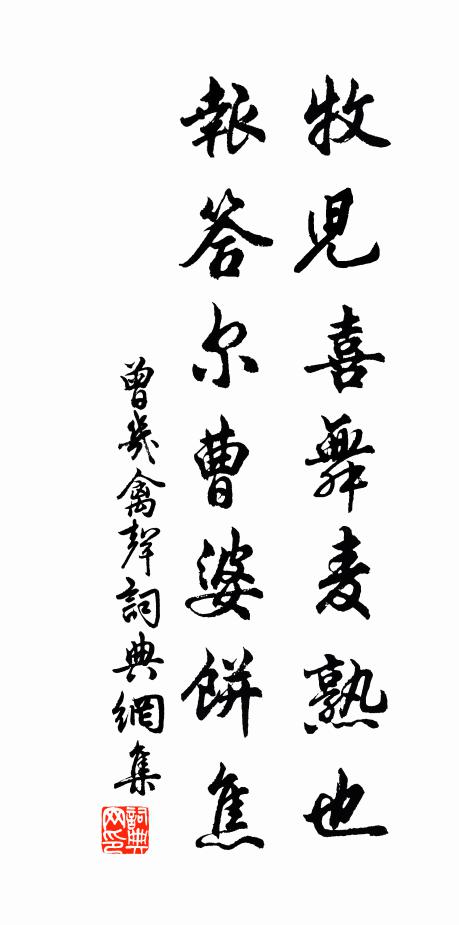 牧児喜舞麦熟也
報答尔曹婆餅焦
曾幾禽聲詞典網集
詞典网印